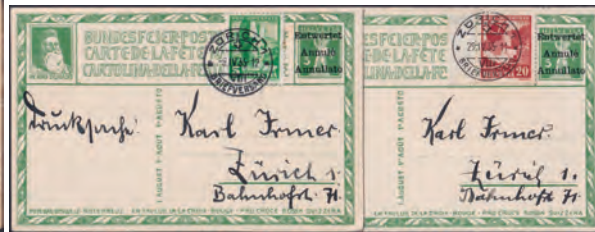 BUNDESFEIER-POST
CARTE DE LA FÊTE
CARTOLINA DELLA FE
ZÜRICH
BRIEFVERSAND
Entwertet
Annulé
Annullato
Drucksache!
1 AUGUST 1er AOUT 1o AGOSTO
Karl Irmer.
Zürich 1.
Bahnhofst. 71.
ESFEIER-POST
DE LA FÊTE
INA DELLA FE
ZÜRICH
BRIEFVERSAND
20
Entwertet
5
Annulé
Annullato
1 AUGUST 1er AOUT 1o AGOSTO
Karl Irmer.
Zürich 1.
Bahnhofst. 71.